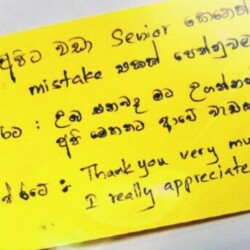 අපිට වඩා Senior කෙනෙක්
mistake එකක් පෙන්නුවම
: උඹ කතබද මට උගන්නන්න
අපි මෙතනට ආවේ වැඩ
රටේ : Thank you very mu
I really appreciate